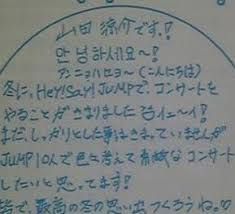 山田涼介です!
안녕하세요~!
アンニョハセヨ〜(こんにちは)
冬に、Hey!Say!JUMPで、コンサートを
やることがきまりました イェ〜イ!
まだ、しっかりとした事はきまっていませんが
JUMP10人で色々考えて素敵なコンサート
したいと思ってます!
皆で、最高の冬の思い出つくろうね。♡